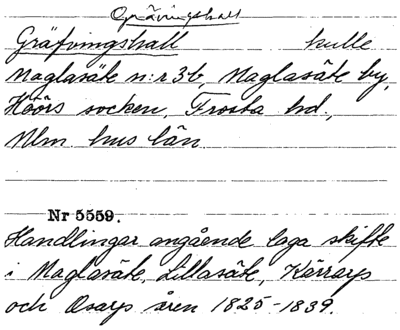 Grävingshall
Gräfvingshall kulle
Maglasäte n:r 3b, Maglasäte by,
Höörs socken, Frosta hd.,
Mlm. hus län.
Nr 5559.
Handlingar angående laga skifte
i Maglasäte, Lillasäte, Kärrarp
och Osarp åren 1825-1839.